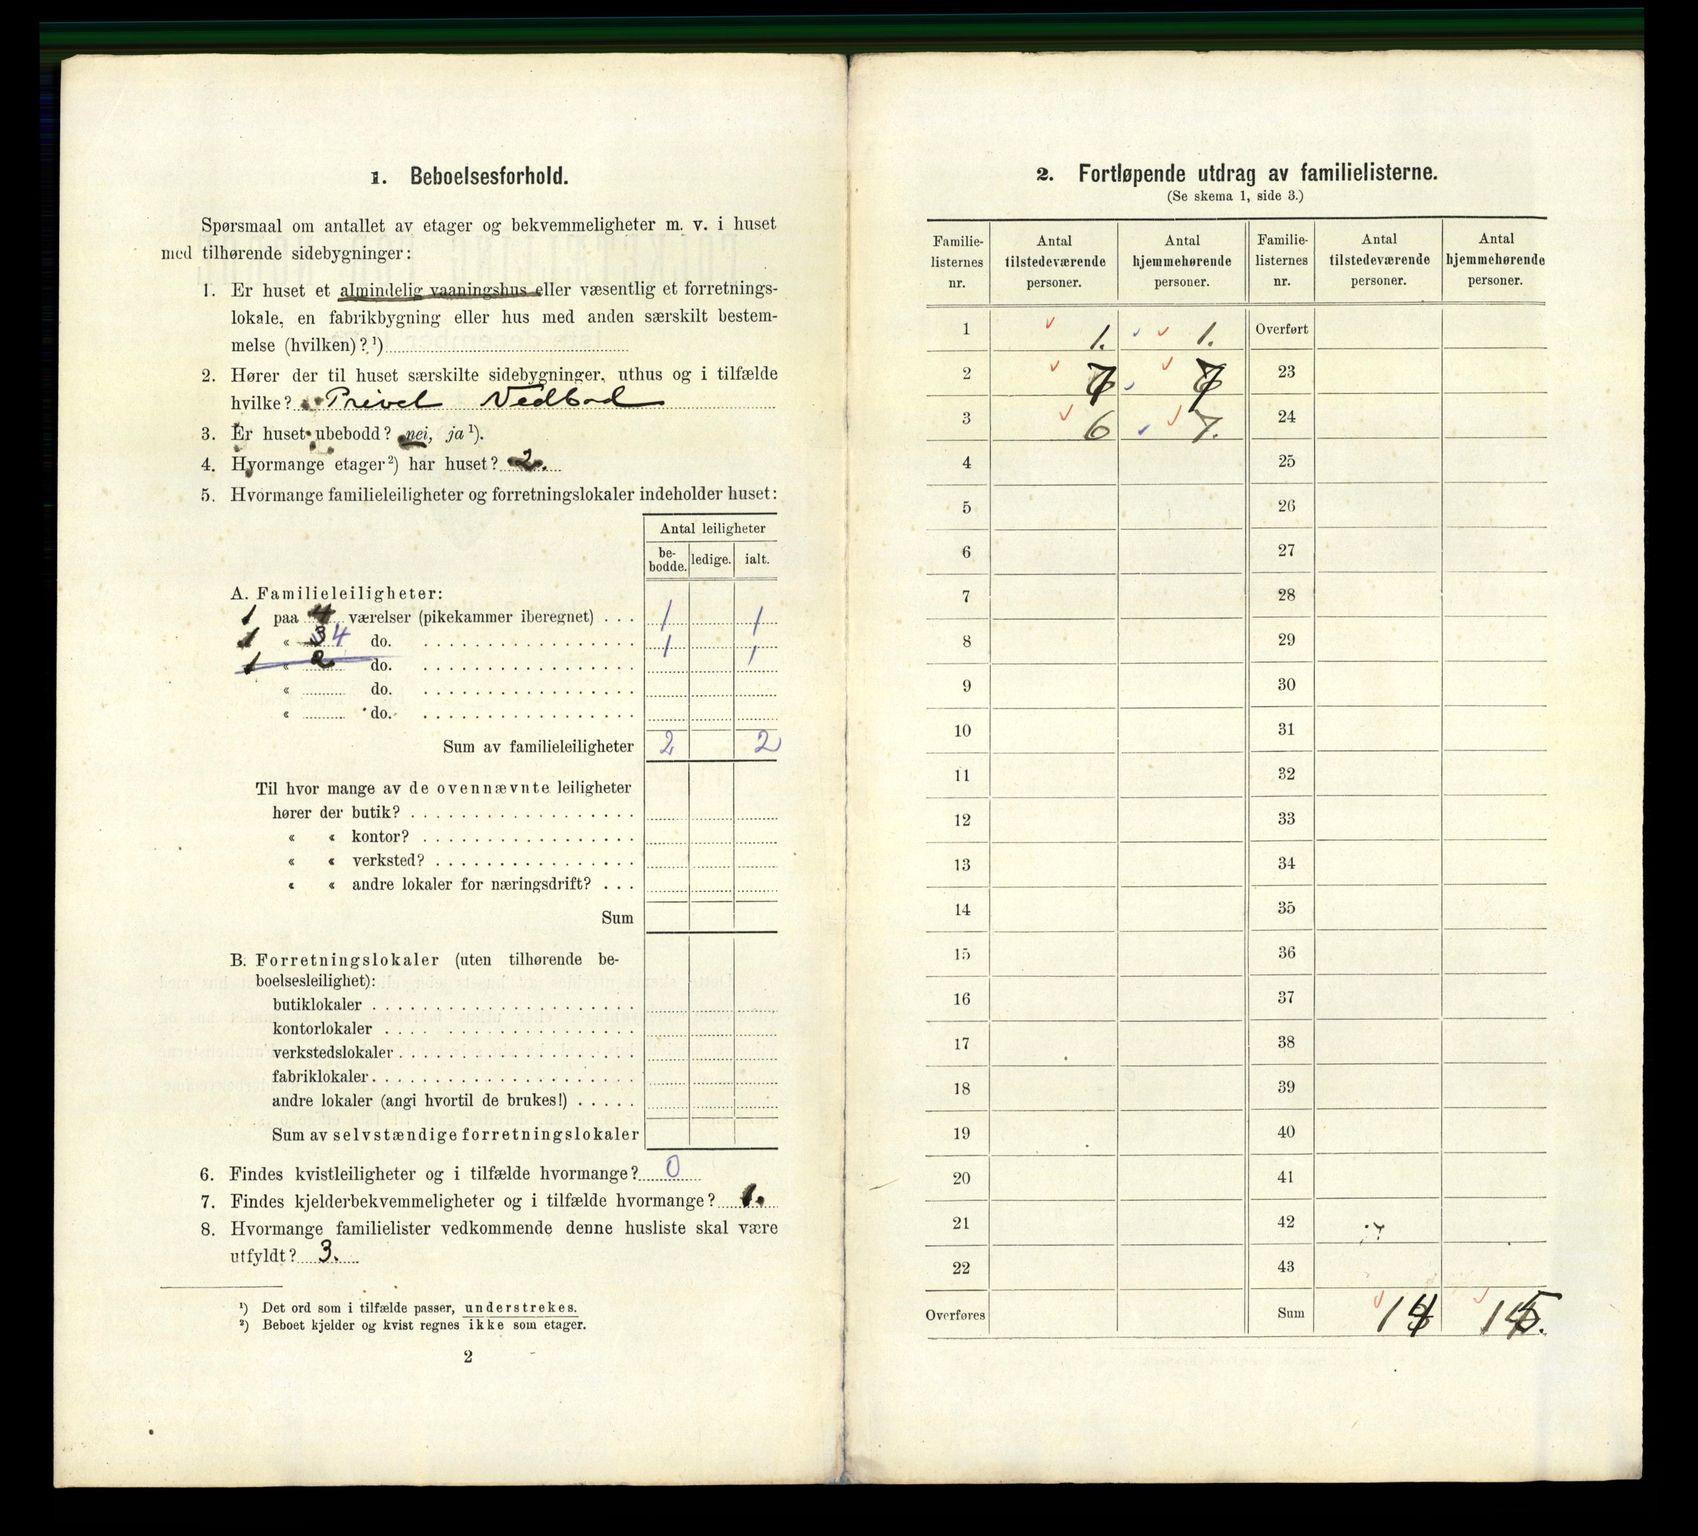 1. Beboelsesforhold.
Spørsmaal om antallet av etager og bekvemmeligheter m. v. i huset
med tilhørende sidebygninger:
1. Er huset et almindelig vaaningshus eller væsentlig et forretnings-
lokale, en fabrikbygning eller hus med anden særskilt bestem-
melse (hvilken)? ¹)
2. Hører der til huset særskilte sidebygninger, uthus og i tilfælde
hvilke? Privet Vedbod
3. Er huset ubebodd? nei, ja ¹).
4. Hvormange etager ²) har huset? 2.
5. Hvormange familieleiligheter og forretningslokaler indeholder huset:
Antal leiligheter
be-bodde. ledige. ialt.
A. Familieleiligheter:
1 paa 4 værelser (pikekammer iberegnet) . . . 1 1
1 « 3 4 do. 1 1
1 « 2 do.
« do.
« do.
Sum av familieleiligheter 2 2
Til hvor mange av de ovennævnte leiligheter
hører der butik?
« « kontor?
« « verksted?
« « andre lokaler for næringsdrift?
Sum
B. Forretningslokaler (uten tilhørende be-
boelsesleilighet):
butiklokaler
kontorlokaler
verkstedslokaler
fabriklokaler
andre lokaler (angi hvortil de brukes!)
Sum av selvstændige forretningslokaler
6. Findes kvistleiligheter og i tilfælde hvormange? 0
7. Findes kjelderbekvemmeligheter og i tilfælde hvormange? 1.
8. Hvormange familielister vedkommende denne husliste skal være
utfyldt? 3.
¹) Det ord som i tilfælde passer, understrekes.
²) Beboet kjelder og kvist regnes ikke som etager.
2
2. Fortløpende utdrag av familielisterne.
(Se skema 1, side 3.)
Familie-listernes nr. Antal tilstedeværende personer. Antal hjemmehørende personer. Familie-listernes nr. Antal tilstedeværende personer. Antal hjemmehørende personer.
1 1. 1. Overført
2 7 7 23
3 6 7. 24
4 25
5 26
6 27
7 28
8 29
9 30
10 31
11 32
12 33
13 34
14 35
15 36
16 37
17 38
18 39
19 40
20 41
21 42
22 43
Overføres Sum 14 15.